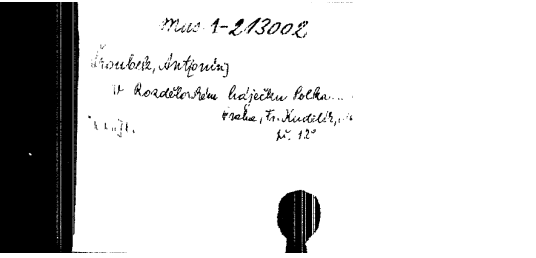 Mus 1-213002
Šroubek, Antonín]
V Rozdělovském háječku Polka....
Praha, Fr. Kudelík,
př. 12°